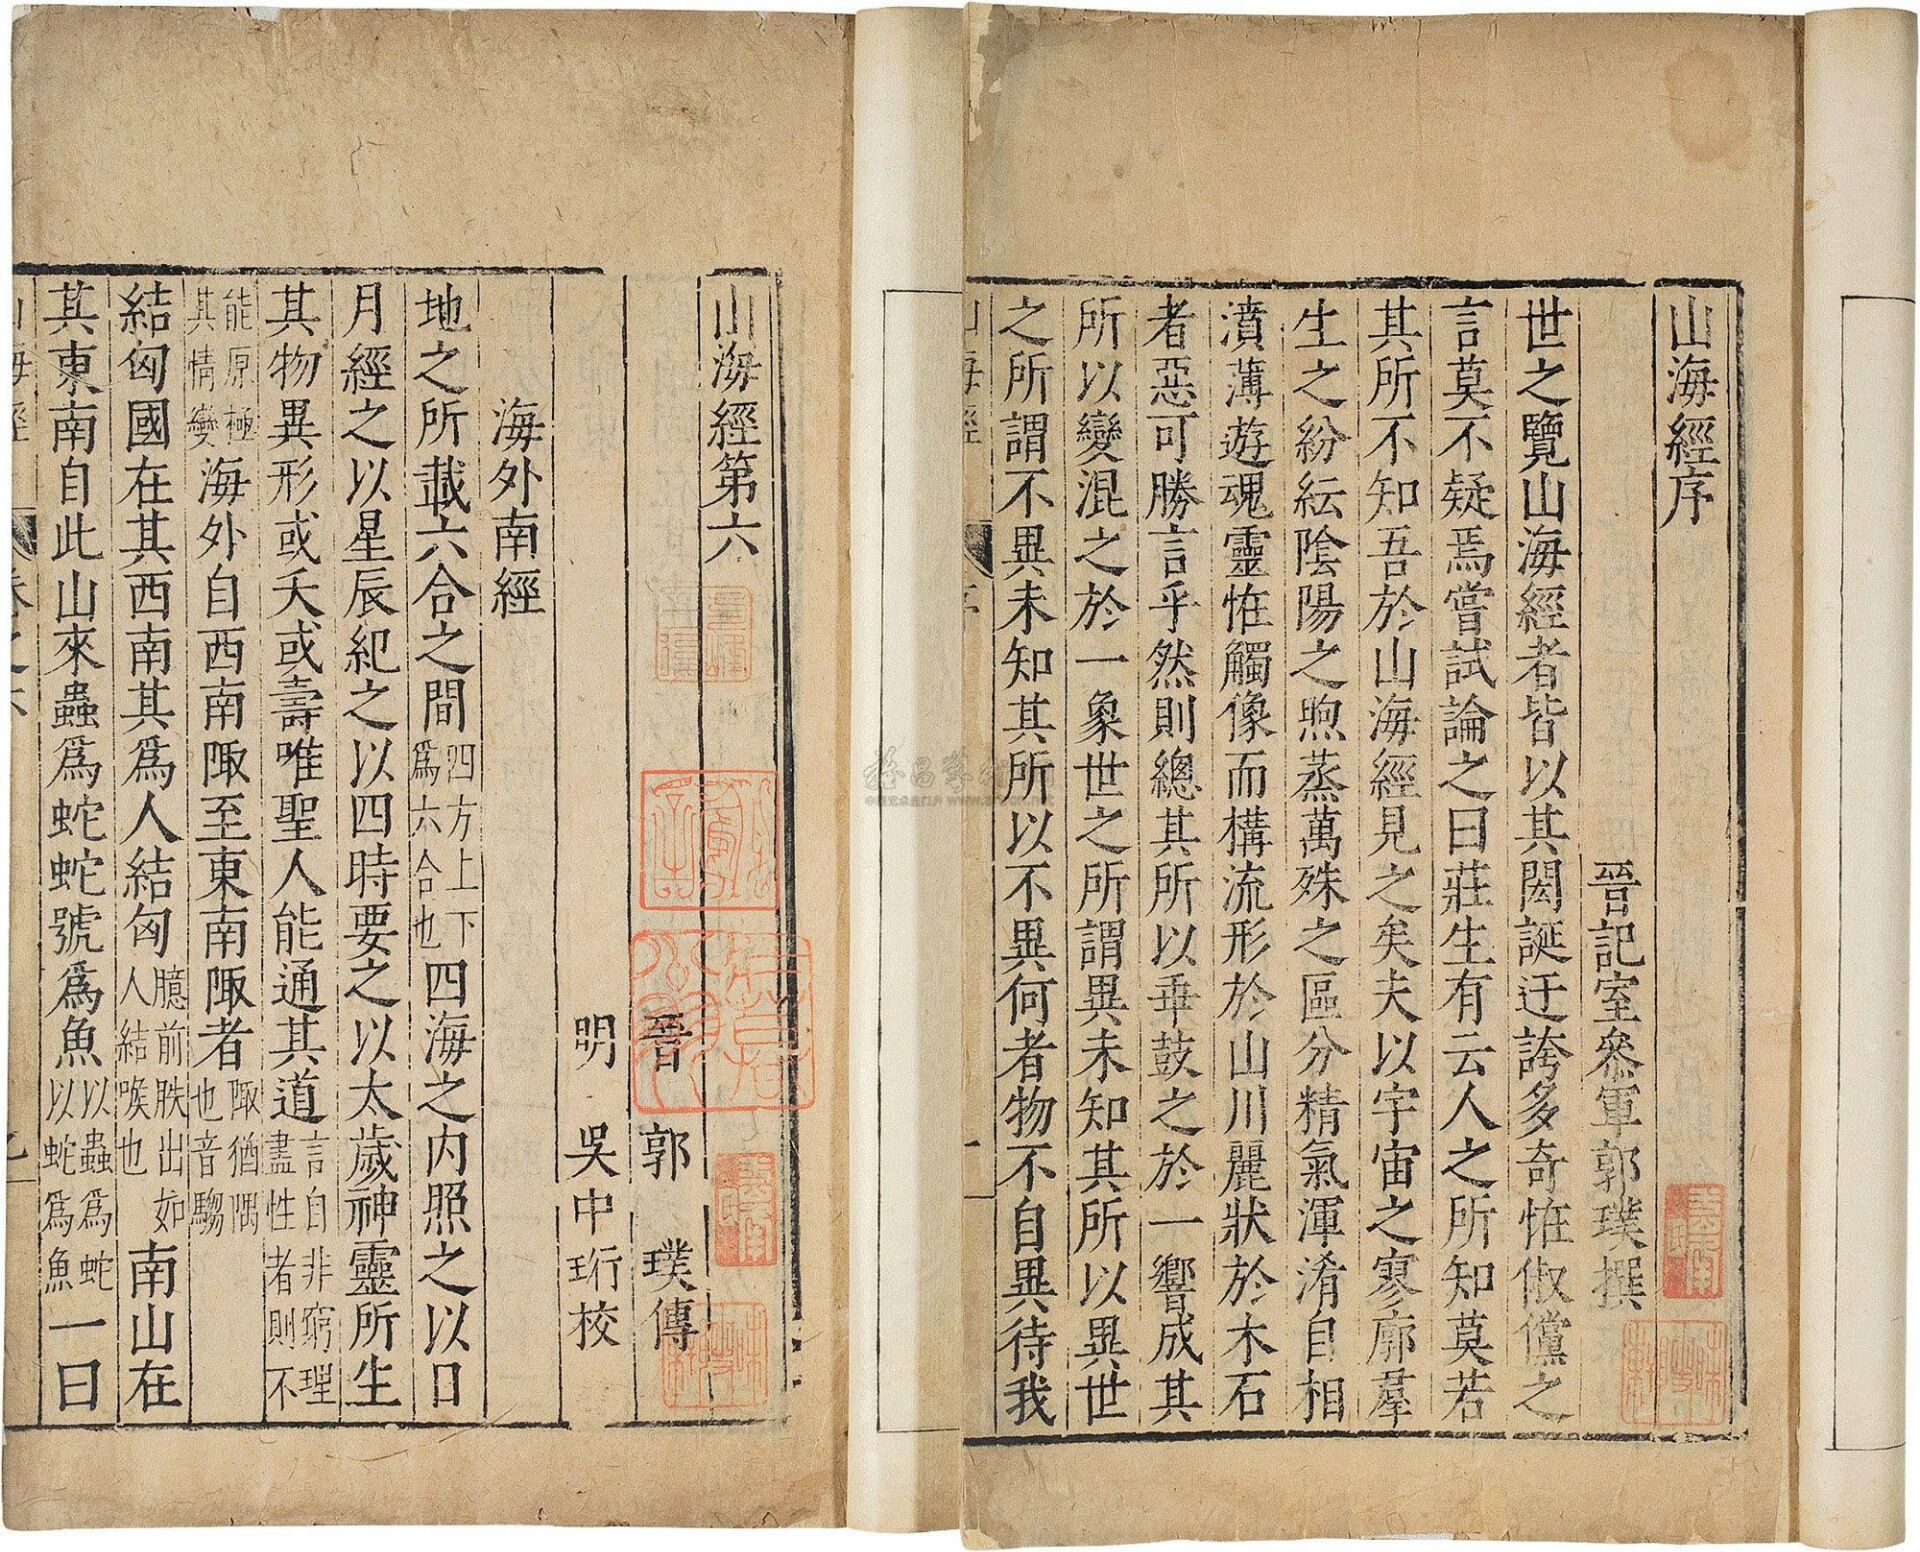 山海經序
晉記室參軍郭璞撰
世之覽山海經者皆以其閎誕迂誇多奇恠俶儻之
言莫不疑焉嘗試論之曰莊生有云人之所知莫若
其所不知吾於山海經見之矣夫以宇宙之寥廓羣
生之紛紜陰陽之煦蒸萬殊之區分精氣渾淆自相
濆薄遊魂靈恠觸像而構流形於山川麗狀於木石
者惡可勝言乎然則總其所以乖鼓之於一響成其
所以變混之於一象世之所謂異未知其所以異世
之所謂不異未知其所以不異何者物不自異待我
山海經第六
晉 郭 璞傳
明 吳中珩校
海外南經
地之所載六合之間四方上下爲六合也四海之内照之以日
月經之以星辰紀之以四時要之以太歲神靈所生
其物異形或夭或壽唯聖人能通其道言自非窮理盡性者則不
能原極其情變海外自西南陬至東南陬者陬猶隅也音騶
結匈國在其西南其爲人結匈臆前胅出如人結喉也南山在
其東南自此山來蟲爲蛇蛇號爲魚以蟲爲蛇以蛇爲魚一曰
山海經 卷之六